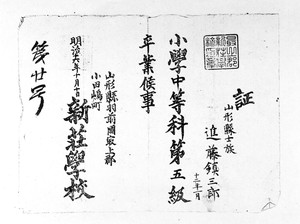 証
山形縣士族
近藤鎮三郎
十三年一月
小學中等科第五級
卒業候事
山形縣羽前國最上郡
小田嶋町
新莊學校
明治十六年十月十日
第廿号